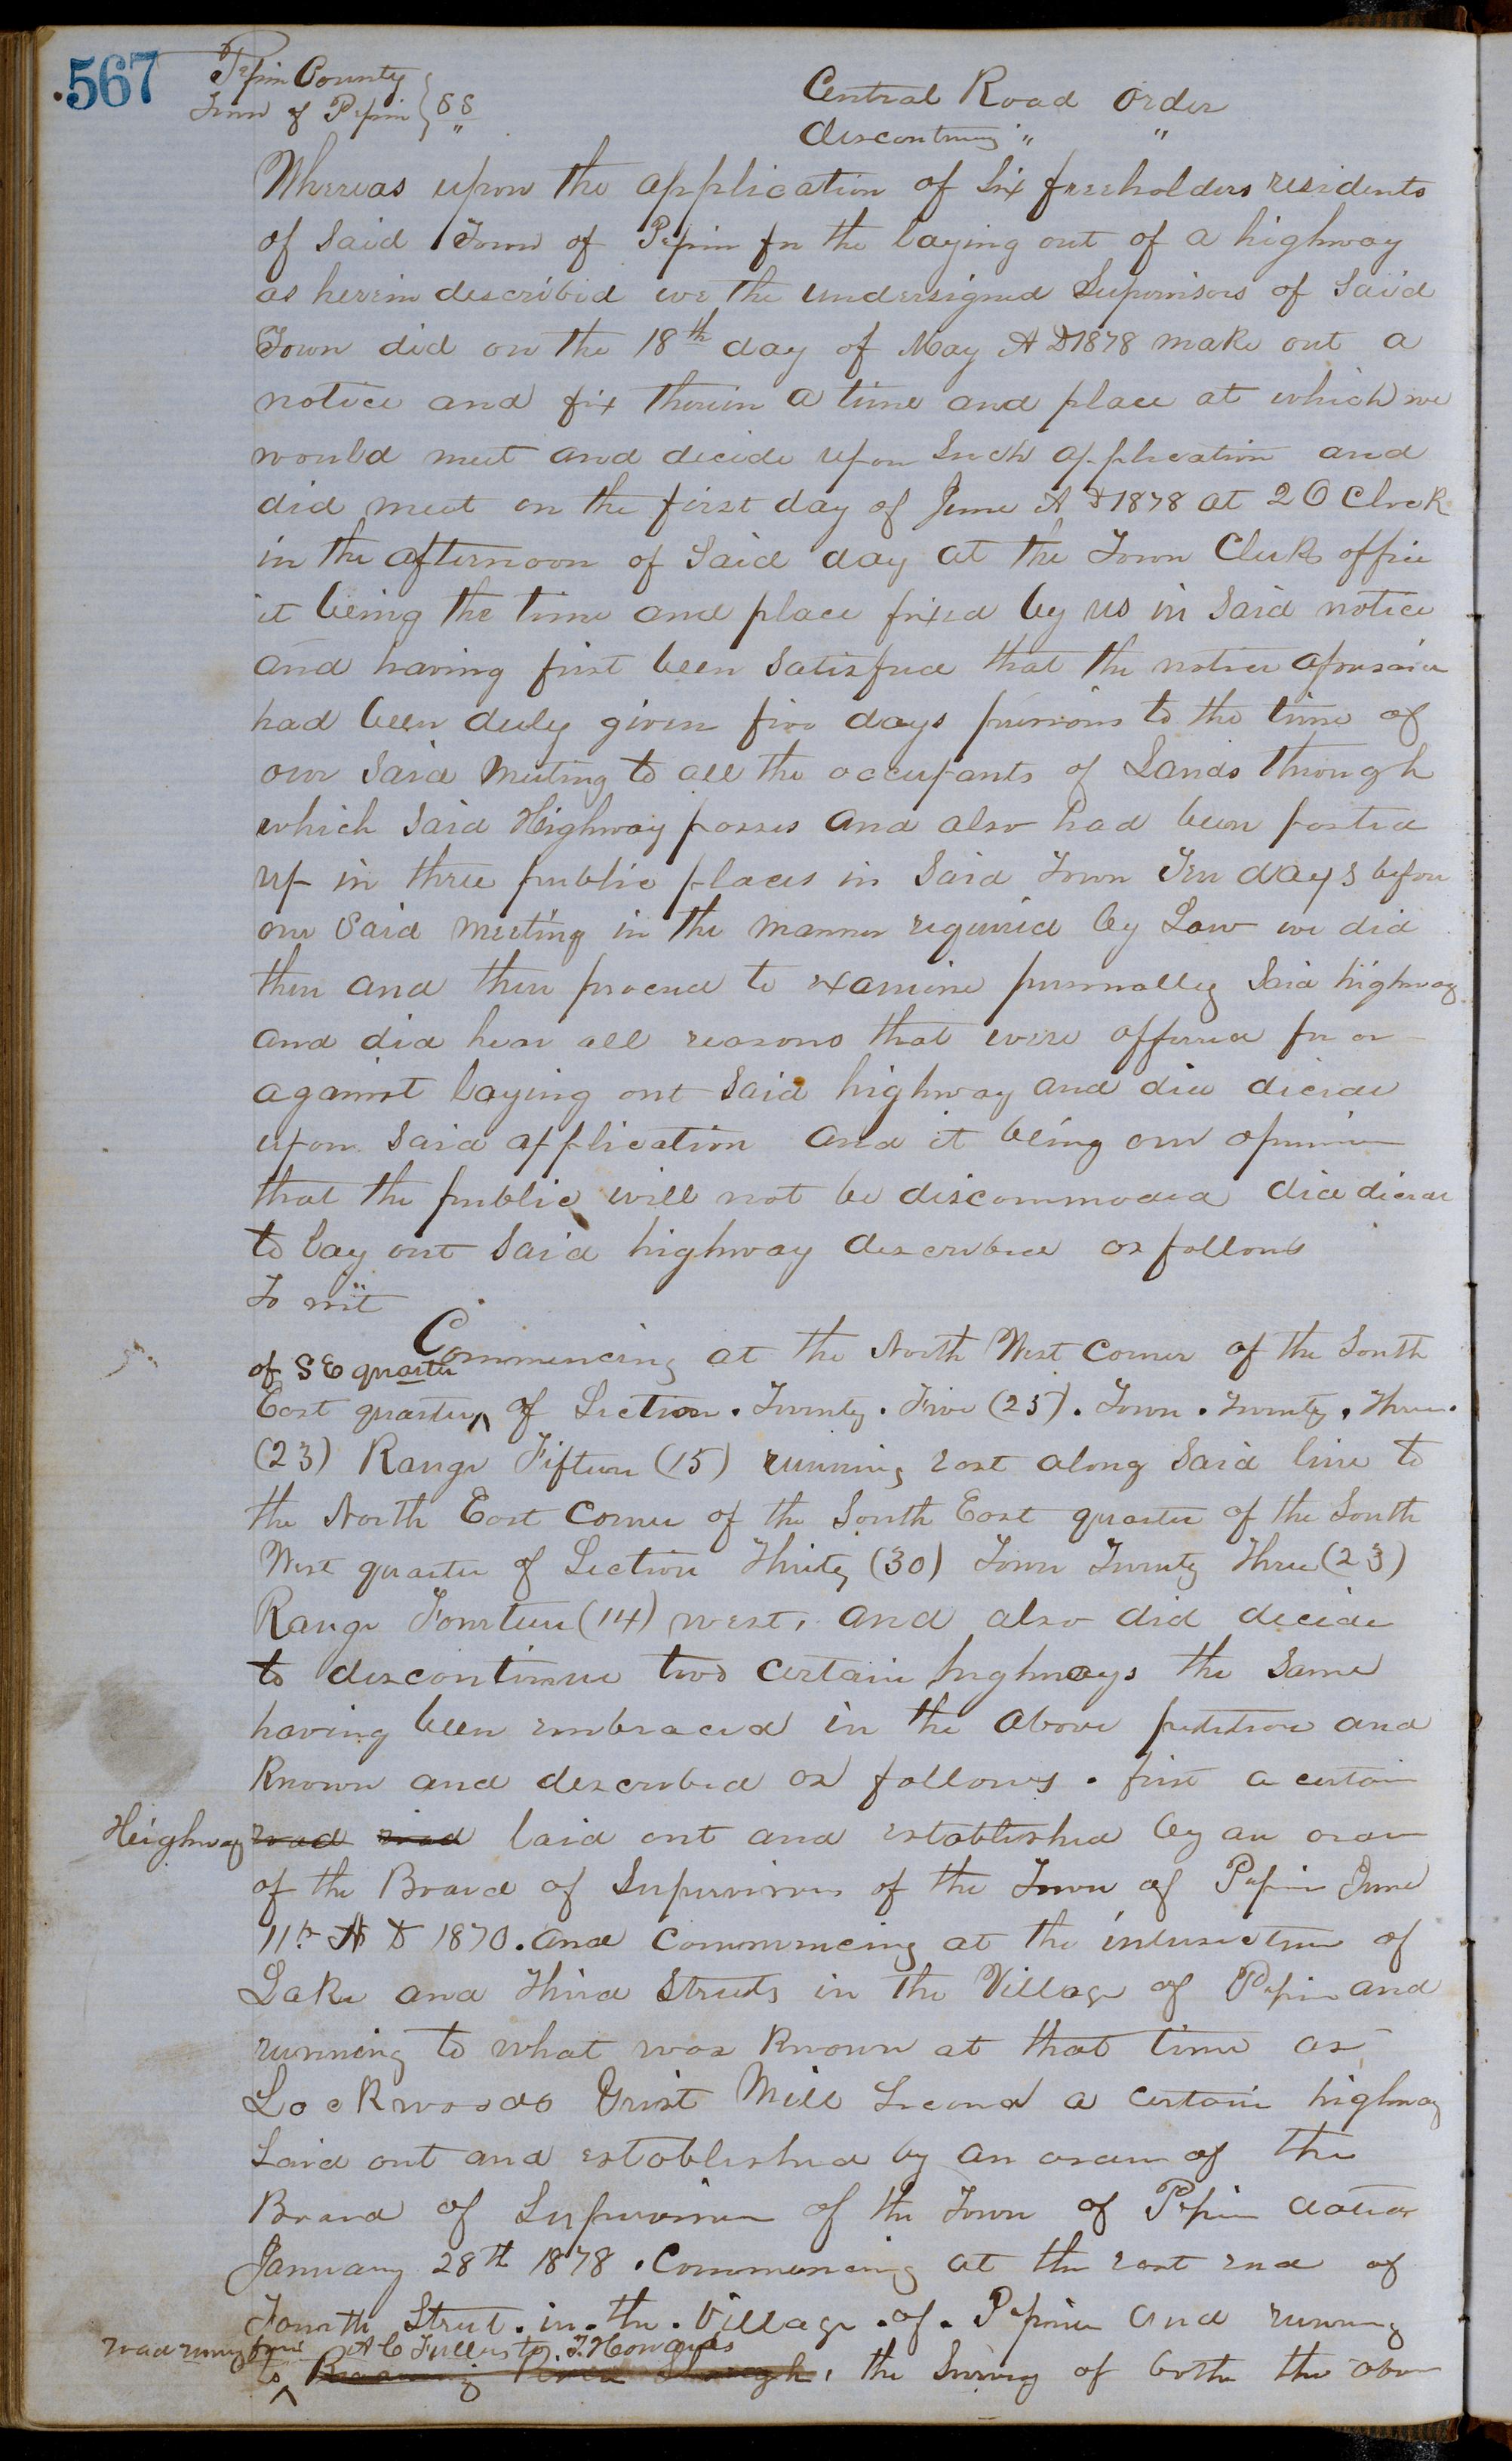 567
Pepin County
Town of Pepin } SS
Central Road Order
discontinuing " "
Whereas upon the application of Six freeholders residents
of Said Town of Pepin for the laying out of a highway
as herein described we the undersigned Supervisors of Said
Town did on the 18th day of May A D 1878 make out a
notice and fix therein a time and place at which we
would meet and decide upon Such application and
did meet on the first day of June A D 1878 at 2 O Clock
in the afternoon of Said day at the Town Clerks office
it being the time and place fixed by us in Said notice
and having first been Satisfied that the notice aforesaid
had been duly given five days previous to the time of
our Said Meeting to all the occupants of Lands through
which Said Highway passes and also had been posted
up in three public places in Said Town Ten days before
our Said Meeting in the manner required by Law we did
then and there proceed to examine personally Said highway
and did hear all reasons that were offered for or
against laying out Said highway and did decide
upon Said application and it being our opinion
that the public will not be discommoded did decide
to lay out Said highway described as follows
To wit
Commencing at the North West Corner of the South
of S E quarter
East quarter ^ of Section . Twenty . Five (25) . Town . Twenty . Three .
(23) Range Fifteen (15) running east along Said line to
the North East Corner of the South East quarter of the South
West quarter of Section Thirty (30) Town Twenty Three (23)
Range Fourteen (14) west, and also did decide
to discontinue two certain highways the Same
having been embraced in the above petition and
Known and described as follows . first a certain
Heighway road road laid out and established by an order
of the Board of Supervisors of the Town of Pepin June
11th A D 1870 . and Commencing at the intersection of
Lake and Third Streets in the Village of Pepin and
running to what was Known at that time as
Lockwoods Grist Mill Second a certain highway
Laid out and established by an order of the
Board of Supervisors of the Town of Pepin dated
January 28th 1878 . Commencing at the east end of
Fourth Street . in . the . Village . of . Pepin and running
road runing from A C Fullers to . J. Howards
to ^ Slough , the Survey of both the above